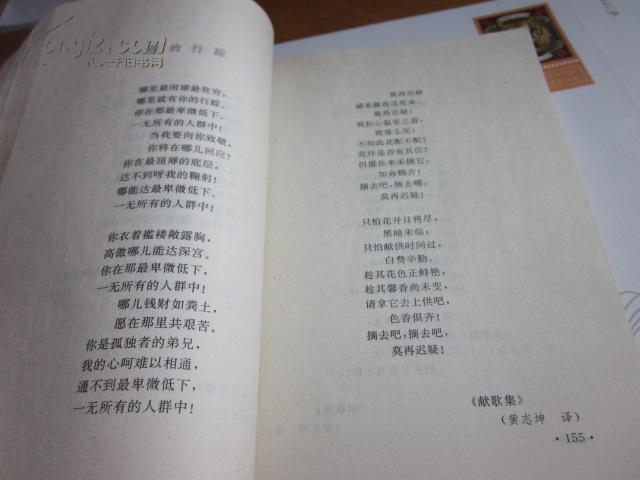 的行踪
哪里最困难最贫穷,
哪里就有你的行踪,
你在那最卑微低下、
一无所有的人群中!
当我要向你致敬,
你将在哪儿回应?
你在最屈辱的底层,
达不到呀我的鞠躬!
哪能达最卑微低下、
一无所有的人群中!
你衣着褴褛敞露胸,
高傲哪儿能达深宫。
你在那最卑微低下、
一无所有的人群中!
哪儿钱财如粪土,
愿在那里共艰苦。
你是孤独者的弟兄,
我的心呵难以相通,
通不到最卑微低下,
一无所有的人群中!
莫再迟疑
请采摘我这花朵,
莫再迟疑!
我担心温室之苗,
堕落尘泥!
不知此花配不配?
花环是否有其位?
但愿你来采摘它,
如命赐吉!
摘去吧,摘去哪,
莫再迟疑!
只怕花开日将尽,
黑暗来临;
只怕献供时间过,
白费辛勤。
趁其花色正鲜艳,
趁其馨香尚未变,
请拿它去上供吧,
色香俱齐!
摘去吧,摘去吧,
莫再迟疑!
《献歌集》
(黄志坤 译)
·155·